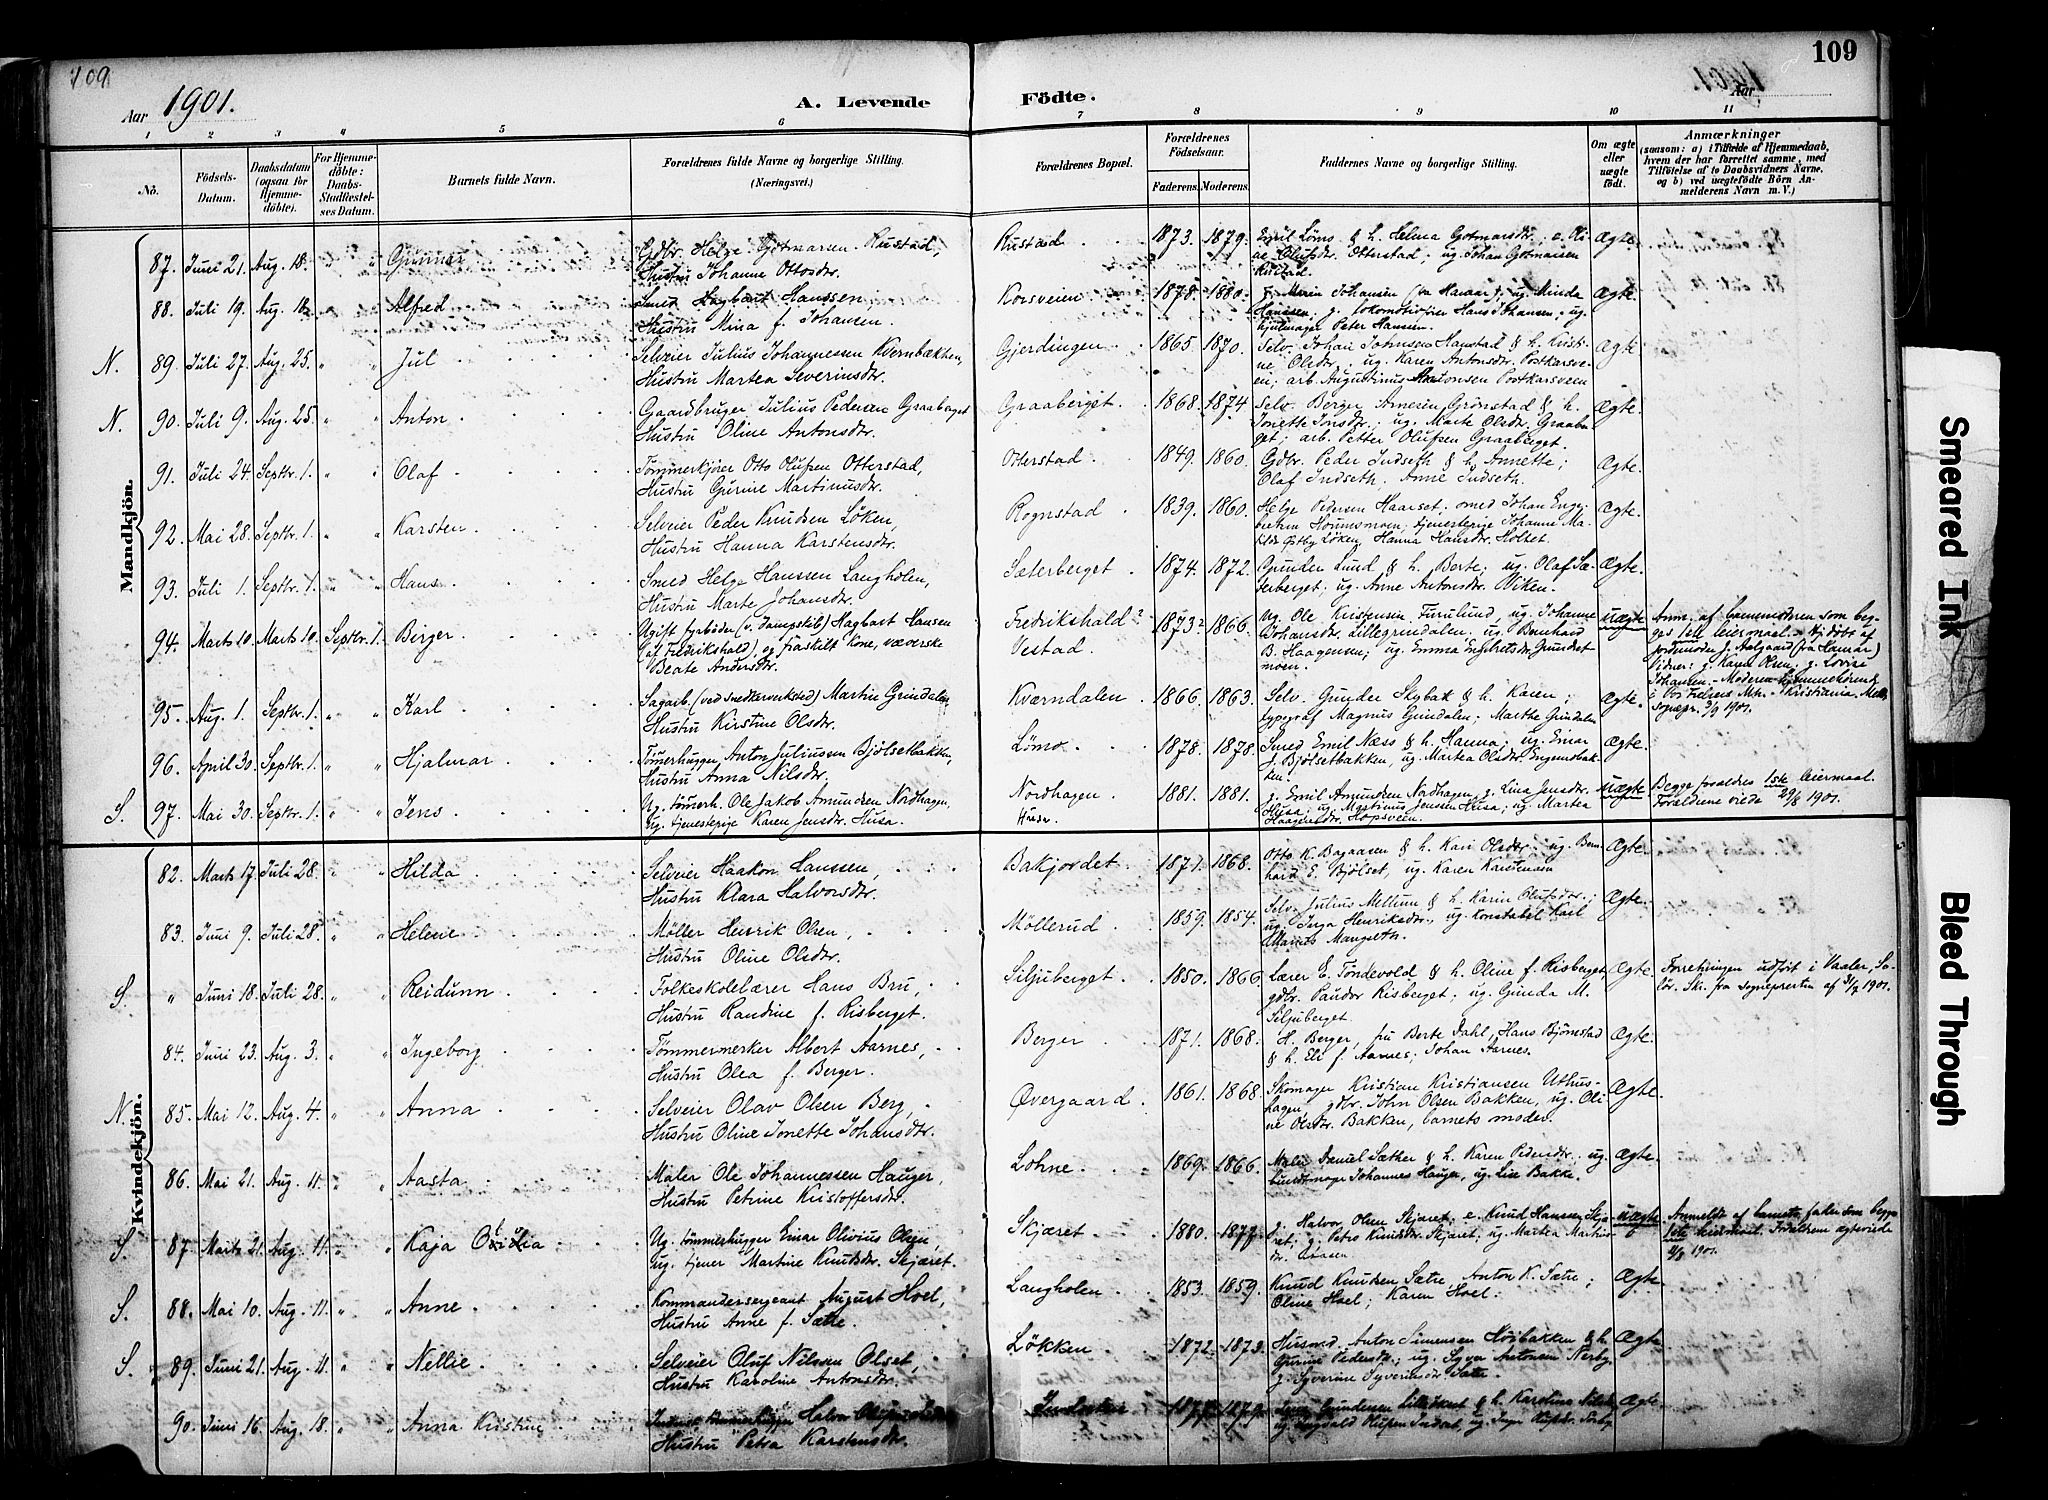 109
109
Aar 1901.
A. Levende Födte.
Aar
1 2 3 4 5 6 7 8 9 10 11
No.
Födsels-Datum.
Daabsdatum (ogsaa for Hjemmedöbte).
For Hjemmedöbte: Daabs-Stadfæstelses Datum.
Barnets fulde Navn.
Forældrenes fulde Navne og borgerlige Stilling. (Næringsvei.)
Forældrenes Bopæl.
Forældrenes Födselsaar.
Faderens. Moderens.
Faddernes Navne og borgerlige Stilling.
Om ægte eller uægte födt.
Anmærkninger (saasom: a) i Tilfælde af Hjemmedaab, hvem der har forrettet samme, med Tilföielse af to Daabsvidners Navne, og b) ved uægtefödte Börn Anmelderens Navn m. V.)
Mandkjön.
87. Juni 21. Aug. 18. " " Gunnar
Gdbr. Helge Gotmarsen Rustad,
Hustru Johanne Ottosdr.
Rustad 1873. 1879.
Emil Lömo & h. Helma Gotmarsdr.; e. Oline Olufsdr. Otterstad; ug. Johan Gotmarsen Rustad.
Ægte.
88. Juli 19. Aug. 18. " " Alfred
Hagbart Hanssen,
Hustru Mina f. Johansen.
Korsveien 1878. 1880.
Johansen (fra Hamar); ug. Minda Hanssen; g. lokomotivförer Hans Johansen; ug. hjulmager Peter Hanssen.
Ægte.
N. 89. Juli 27. Aug. 25. " " Jul
Selveier Julius Johannessen Kvernbækken,
Hustru Martea Severinsdr.
Gjerdingen 1865. 1870.
Selv. Johan Johnsen Hanstad & h. Kristine Olsdr.; ug. Karen Antonsdr. Postkarsveen; arb. Augustinus Antonsen Postkarsveen
Ægte
N. 90. Juli 9. Aug. 25. " " Anton
Gaardbruger Julius Pedersen Graaberget
Hustru Oline Antonsdr.
Graaberget 1868. 1874.
Selv. Berger Arnesen Grönstad & h. Jonette Jonsdr.; ug. Marte Olsdr. Graaberget; arb. Petter Olufsen Graaberget.
Ægte.
91. Juli 24. Septbr. 1. " " Olaf
Tömmerkjörer Otto Olufsen Otterstad,
Hustru Gurine Martinusdr.
Otterstad 1849. 1860.
Gdbr. Peder Indseth & h. Annette; Olaf Indseth. Anne Indseth.
Ægte.
92. Mai 28. Septbr. 1. " " Karsten
Selveier Peder Knudsen Löken,
Hustru Hanna Karstensdr.
Rognstad 1839. 1860.
Helge Pedersen Haarset. smed Johan Engebrethsen; tjenestepige Johanne Ma- Østby Löken, Hanna Hansdr. Holset.
Ægte.
93. Juli 1. Septbr. 1. " " Hans
Smed Helge Hanssen Langholen,
Hustru Marte Johansdr.
Sæterberget 1874. 1872.
Gunder Lund & h. Berte; ug. Olaf Sæterberget; ug. Anne Antonsdr. Viken.
Ægte.
94. Marts 10. Marts 10. Septbr. 1. Birger
Ugift fyrböder (v. Dampskib) Hagbart Hansen (af Fredrikshald), og fraskilt Kone, væverske
Beate Andersdr.
Fredrikshald? Vestad. 1873? 1866.
Ug. Ole Kristensen Furulund, ug. Johanne Johansdr. Lillegrindalen, ug. Bernhard B. Haagensen; ug. Emma Grundsetmoen.
uægte
Anm. af barnemoderen som begges 1ste leiermaal. Hjdöbt af jordemoder J. Aalgaard (fra Hamar) Vidner: g. Karen Olsen, g. Lovise Johansen. - Moderen i Vor Frelsers Mh. Kristiania. sognepr. 3/9 1901.
95. Aug. 1. Septbr. 1. " " Karl
Sagarb. (ved Snedkerverksted) Martin Grindalen
Hustru Kirstine Olsdr.
Kværndalen 1866. 1863.
Selv. Gunder Skybak & h. Karen; typograf Magnus Grindalen; Marthe Grindalen
Ægte.
96. April 30. Septbr. 1. " " Hjalmar
Tömerhugger Anton Juliussen Bjölsetbakken,
Hustru Anna Nilsdr.
Lömo. 1878. 1878.
Smed Emil Næss & h. Hanna; ug. Einar J. Bjölsetbakken, ug. Martea Olsdr. Engemobakken.
Ægte.
S. 97. Mai 30. Septbr. 1. " " Jens
Ug. tömerh. Ole Jakob Amundsen Nordhagen,
ug. tjenestepige Karen Jensdr. Husa.
Nordhagen Husa. 1881. 1881.
g. Emil Amundsen Nordhagen, g. Lina Jensdr. Husa; ug. Martinus Jensen Husa; ug. Martea Haagensdr. Hopsveen.
uægte
Begge foreldres 1ste leiermaal. Forældrene viede 29/8 1901.
Kvindekjön.
82. Marts 17. Juli 28. " " Hilda
Selveier Haakon Hanssen,
Hustru Klara Halvorsdr.
Bakjordet. 1871. 1868.
Otto K. Bagaasen & h. Kari Olsdr.; ug. Bernhard E. Bjölset, ug. Karen Karstensen
Ægte.
83. Juni 9. Juli 28. " " Helene
Möller Henrik Olsen,
Hustru Oline Olsdr.
Möllerud 1859. 1854.
Selv. Julius Mellum & h. Karin Olufsdr.; ug. Inga Henriksdr., ug. Konstabel Karl Marius Mangseth.
Ægte.
S. " Juni 18. Juli 28. " " Reidunn
Folkeskolelærer Hans Bru,
Hustru Randine f. Risberget.
Siljuberget 1850. 1866.
Lærer E. Töndevold & h. Oline f. Risberget, gdbr. Paudor Risberget; ug. Gunda M. Siljuberget.
Ægte.
Forretningen udfört i Vaaler, Solör. Skr. fra sognepresten af 31/7 1901.
84. Juni 23. Aug. 3. " " Ingeborg
Tömmermerker Albert Aarnes,
Hustru Olea f. Berger.
Berger 1871. 1868.
H. Berger, fru Berte Dahl, Hans Björnstad & h. Eli f. Aarnes; Johan Aarnes.
Ægte.
N. 85. Mai 12. Aug. 4. " " Anna
Selveier Olav Olsen Berg,
Hustru Oline Jonette Johansdtr.
Øvergaard. 1861. 1868.
Skomager Kristian Kristiansen Uthushagen, gdbr. John Olsen Bakken, ug. Oline Olsdr. Bakken, barnets moder.
Ægte.
86. Mai 21. Aug. 11. " " Aasta
Maler Ole Johannessen Hauger,
Hustru Petrine Kristoffersdr.
Lohne. 1869. 1866.
Maler Daniel Sæther & h. Karen Pedersdr. ug. buntmager Johannes Hauger, ug. Lise Bakke.
Ægte.
S. 87. Marts 21. Aug. 11. " " Kaja
Ug. tömmerhugger Einar Olivius Olsen,
ug. tjener Martine Knudsdr. Skjæret.
Skjæret 1880. 1877.
g. Halvor Olsen Skjæret; e. Knud Hanssen Skjæret; g. Petra Knudsdr. Skjæret; ug. Martea Martinsdr.
uægte
Anmeldt af barnets fader som begges 1ste leiermaal. Forældrene ægteviede 1901.
S. 88. Mai 10. Aug. 11. " " Anne
Kommandersergeant August Hoel,
Hustru Anne f. Sætre.
Langholen 1853. 1859.
Knud Knudsen Sætre, Anton K. Sætre; Oline Hoel; Karen Hoel.
Ægte
S. 89. Juni 21. Aug. 11. " " Nellie
Selveier Oluf Nilssen Olset,
Hustru Karoline Antonsdr.
Lökken 1872. 1873.
Husmd. Anton Simensen Höibakken & h. Gurine Pedersdr.; ug. Syver Antonsen Nerby, g. Syverine Syverinsdr. Sætre.
Ægte
90. Juni 16. Aug. 18. " " Anna Kristine
tömmerhugger Halvor
Hustru Petra Karstensdr.
1877. 1879.
Gundersen & h. Karoline ug. Ingvald Olufsen Indset, ug. Inga
Ægte.
Smeared Ink
Bleed Through